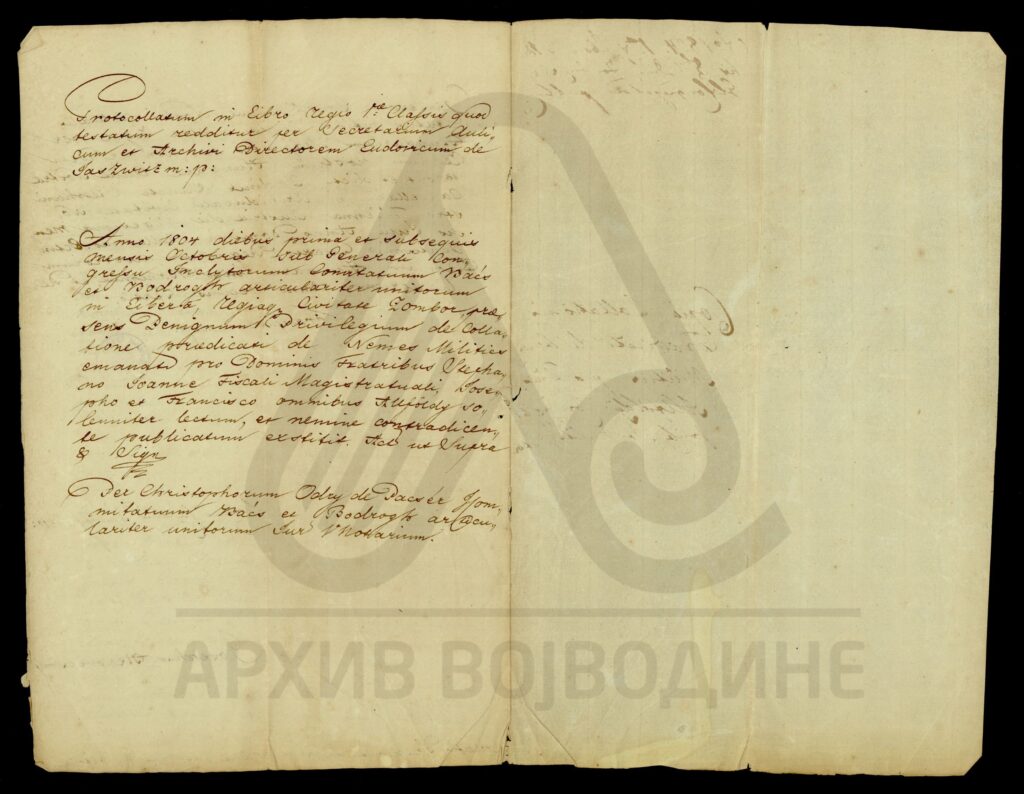 Protocollatum in Libro Regio 1ae Classis quod
testatum redditur per Secretarium Auli-
cum et Archivi Directorem Ludovicum de
Jaszwitz m: p:
Anno 1804 diebus prima et subsequis
mensis Octobris sub Generali Con-
gressu Inclytorum Comitatuum Bács
et Bodrogh articulariter unitorum
in Libera, Regiaq Civitate Zombor, præ-
sens Benignum Privilegium de Colla-
tione prædicati de Nemes Militics
emanatu pro Dominis Fratribus Stepha-
no Joanne Fiscali Magistratuali, Jose-
pho et Francisco omnibus Alföldy so-
lenniter lectum, et nemine contradicen-
te publicatum exstitit. Act ut Supra
& Sign
Per Christophorum Odry de Pacsér
mitatuum Bács et Bodrogh
lariter unitorum Jur Notarium.
АРХИВ ВОЈВОДИНЕ